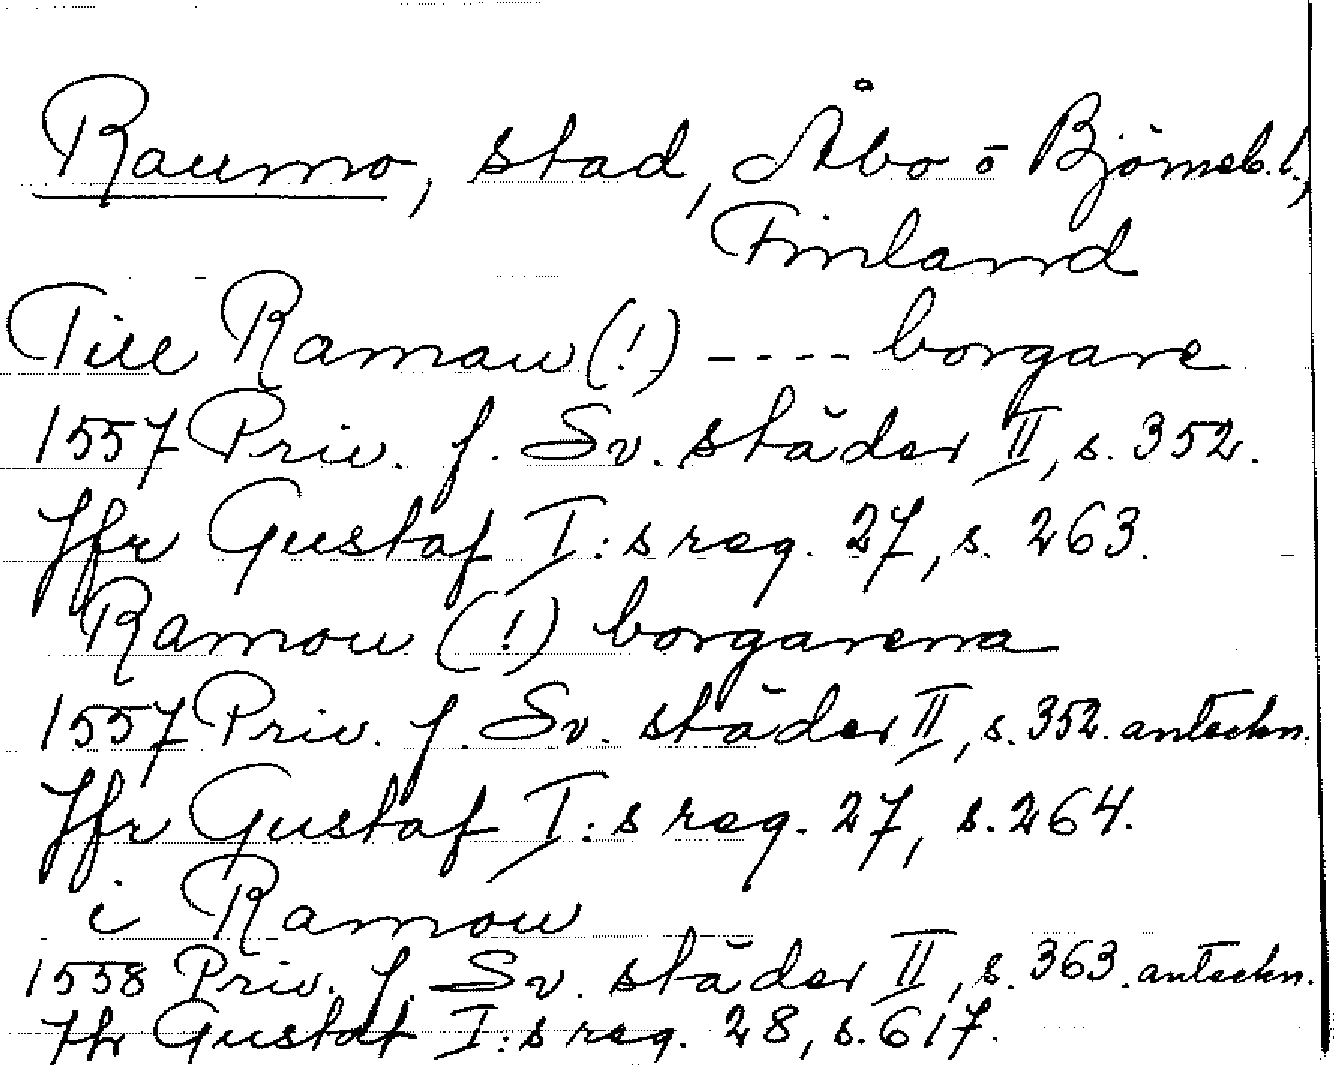 Raumo, stad, Åbo o Björneb. l.,
Finland
Till Ramau (!) ---- borgare
1557 Priv. f. Sv. städer II, s. 352.
Jfr Gustaf I:s reg. 27, s. 263.
Ramou (!) borgarena
1557 Priv. f. Sv. städer II, s. 352. anteckn.
Jfr Gustaf I:s reg. 27, s. 264.
i Ramou
1558 Priv. f. Sv. städer II, s. 363. anteckn.
Jfr Gustaf I:s reg. 28, s. 617.